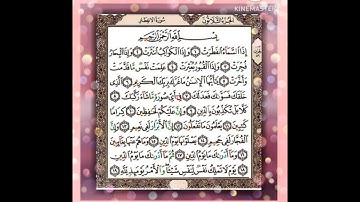 KINEMASTER
الجزء الثلاثون سورة الانفطار
بسم الله الرحمن الرحيم
إذا السماء انفطرت ١ وإذا الكواكب انتثرت ٢ وإذا البحار
فجرت ٣ وإذا القبور بعثرت ٤ علمت نفس ما قدمت
وأخرت ٥ يا أيها الإنسان ما غرك بربك الكريم ٦ الذي
خلقك فسواك فعدلك ٧ في أي صورة ما شاء ركبك ٨
كلا بل تكذبون بالدين ٩ وإن عليكم لحافظين ١٠ كراما
كاتبين ١١ يعلمون ما تفعلون ١٢ إن الأبرار لفي نعيم ١٣ وإن
الفجار لفي جحيم ١٤ يصلونها يوم الدين ١٥ وما هم عنها بغائبين
١٦ وما أدراك ما يوم الدين ١٧ ثم ما أدراك ما يوم الدين
١٨ يوم لا تملك نفس لنفس شيئا والأمر يومئذ لله ١٩